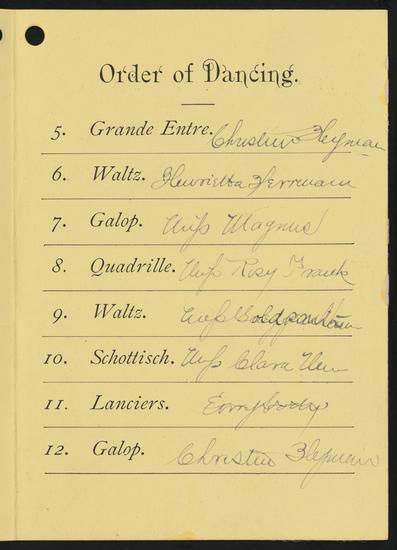 Order of Dancing.
5. Grande Entre. Christine Heyman
6. Waltz. Henrietta Herrmann
7. Galop. Miss Magnus
8. Quadrille. Miss Rosy Frank
9. Waltz. Miss
10. Schottisch. Miss Clara
11. Lanciers. Everybody
12. Galop. Christine Heyman